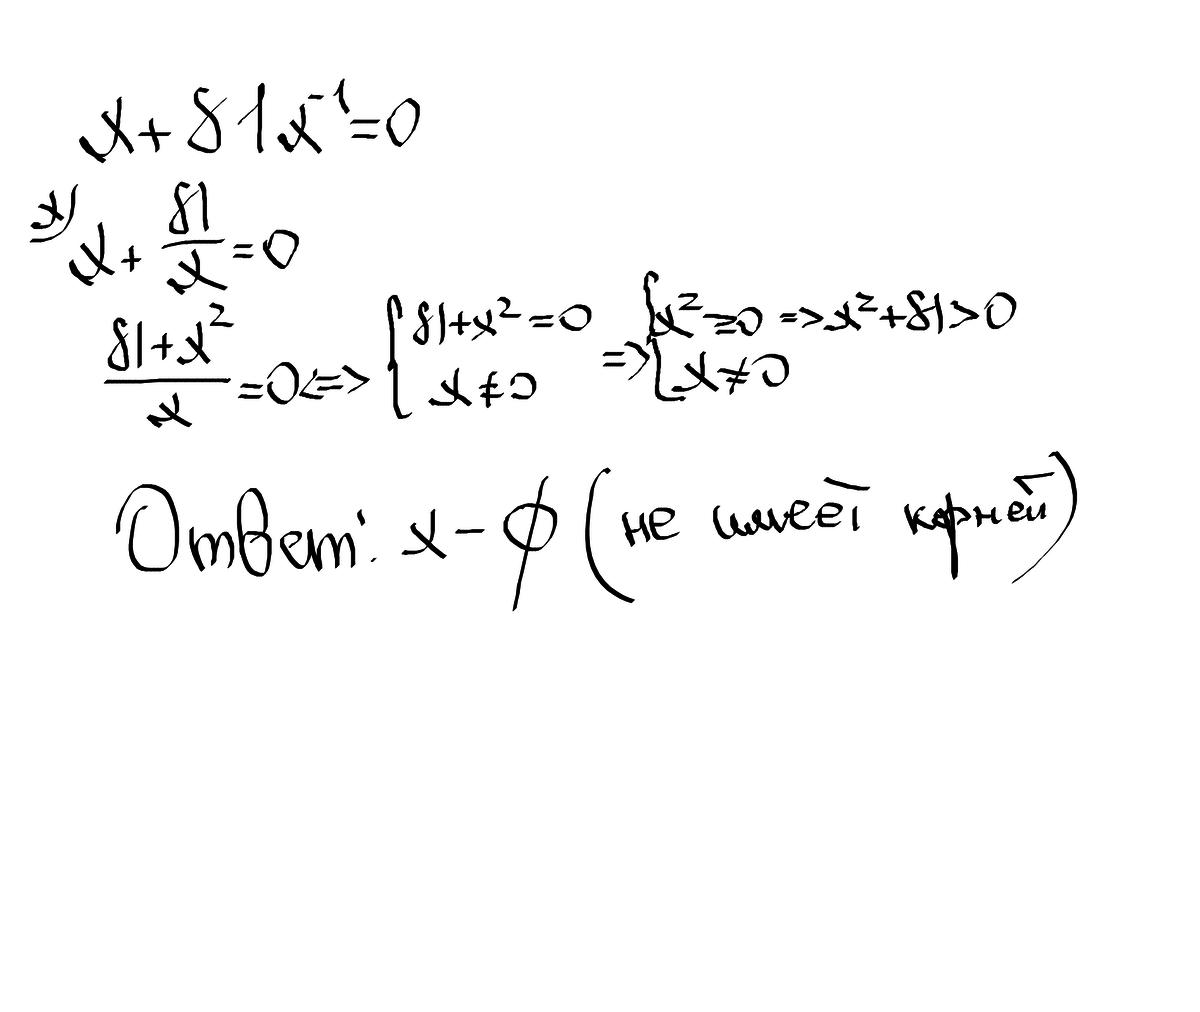 x + 81x⁻¹ = 0
x) x + 81/x = 0
(81 + x²)/x = 0 <=> { 81 + x² = 0 x ≠ 0 => { x² ≥ 0 => x² + 81 > 0 x ≠ 0
Ответ: x - ∅ (не имеет корней)